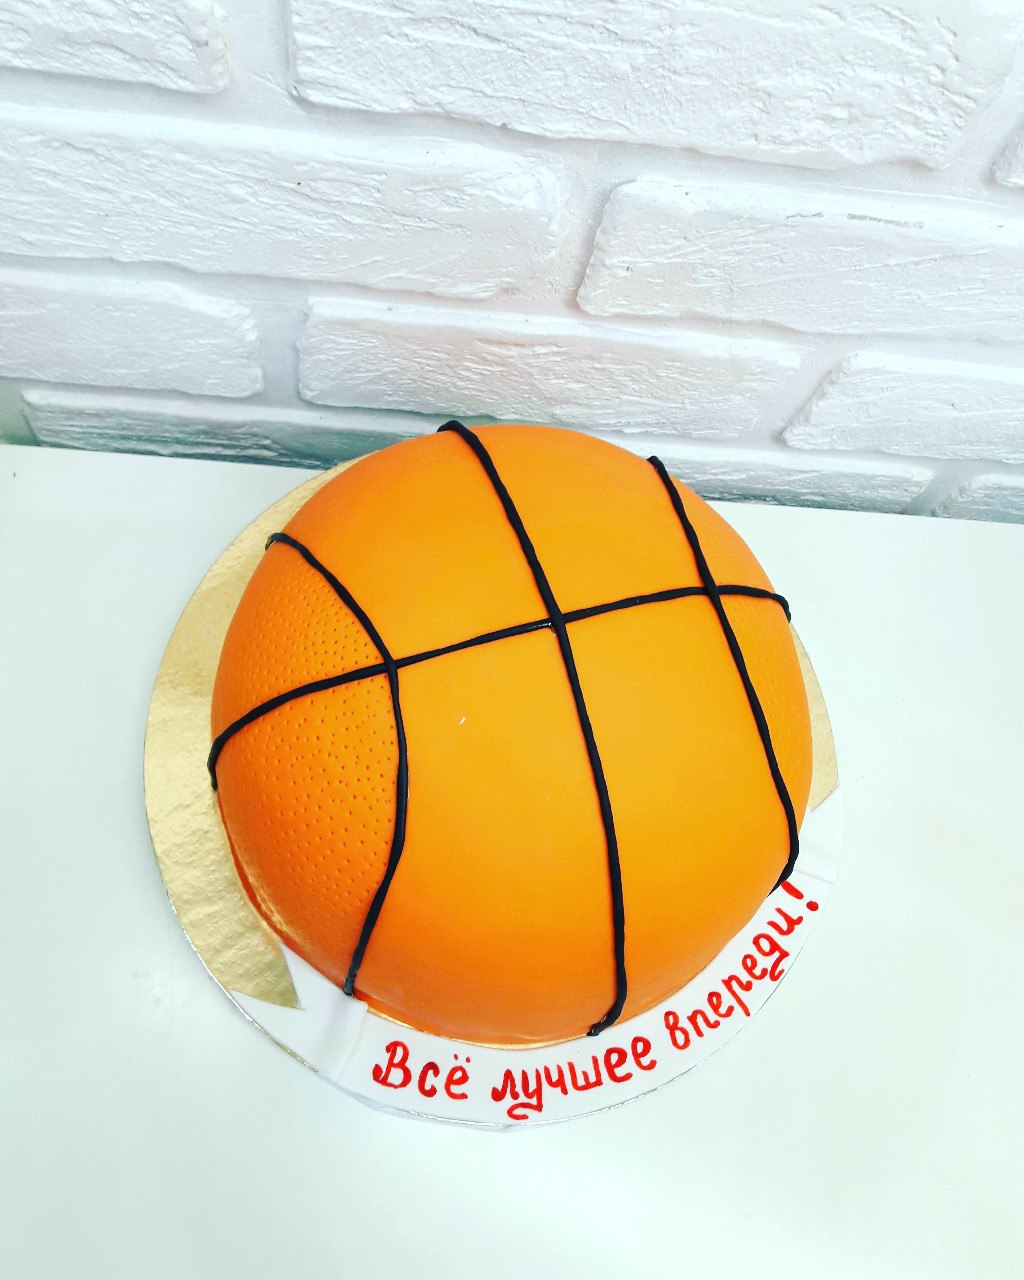 Всё лучшее впереди!